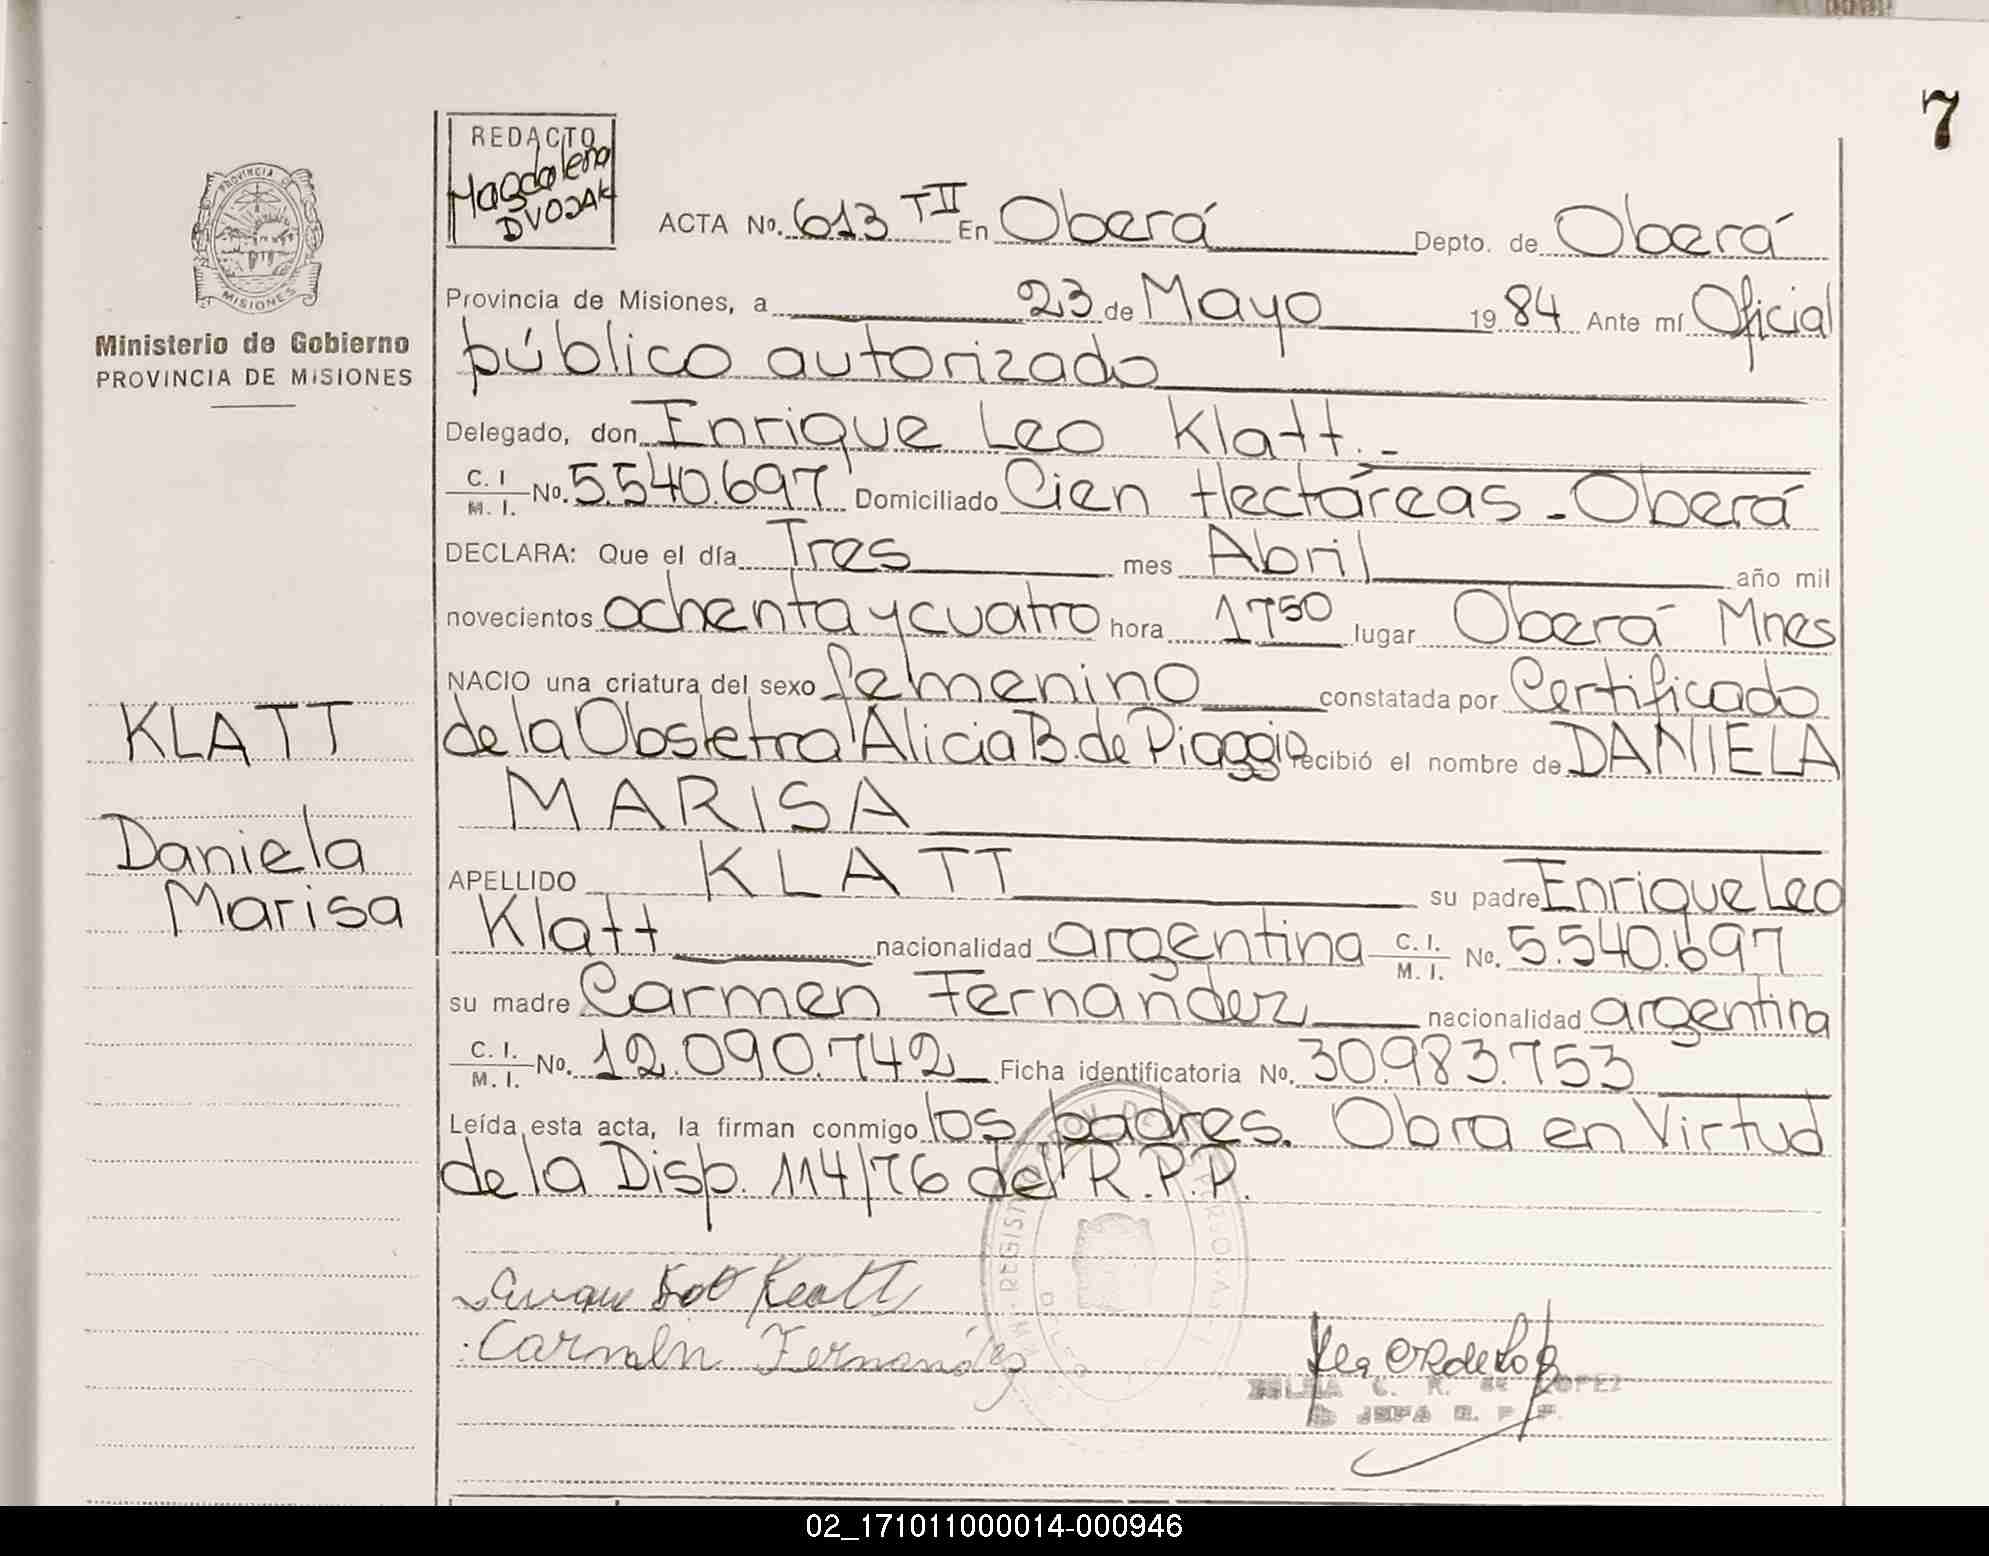 7
REDACTO
Magdalena
DVOJAK
PROVINCIA DE
MISIONES
Ministerio de Gobierno
PROVINCIA DE MISIONES
KLATT
Daniela
Marisa
ACTA No. 613 TII En Oberá Depto. de Oberá
Provincia de Misiones, a 23 de Mayo 1984 Ante mí Oficial
público autorizado
Delegado, don Enrique Leo Klatt.-
C. I / M. I. No. 5.540.697 Domiciliado Cien Hectáreas - Oberá
DECLARA: Que el día Tres mes Abril año mil
novecientos ochenta y cuatro hora 1750 lugar Oberá Mnes
NACIO una criatura del sexo femenino constatada por Certificado
de la Obstetra Alicia B. de Piaggio recibió el nombre de DANIELA
MARISA
APELLIDO KLATT su padre Enrique Leo
Klatt nacionalidad argentina C. I. / M. I. No. 5.540.697
su madre Carmen Fernandez nacionalidad argentina
C. I. / M. I. No. 12.090.742 Ficha identificatoria No. 30.983.753
Leída esta acta, la firman conmigo los padres. Obra en Virtud
de la Disp. 114/76 del R.P.P.
Klatt
Carmen Fernandez
C. R. de LOPEZ
JEFA R. P. P.
02_171011000014-000946